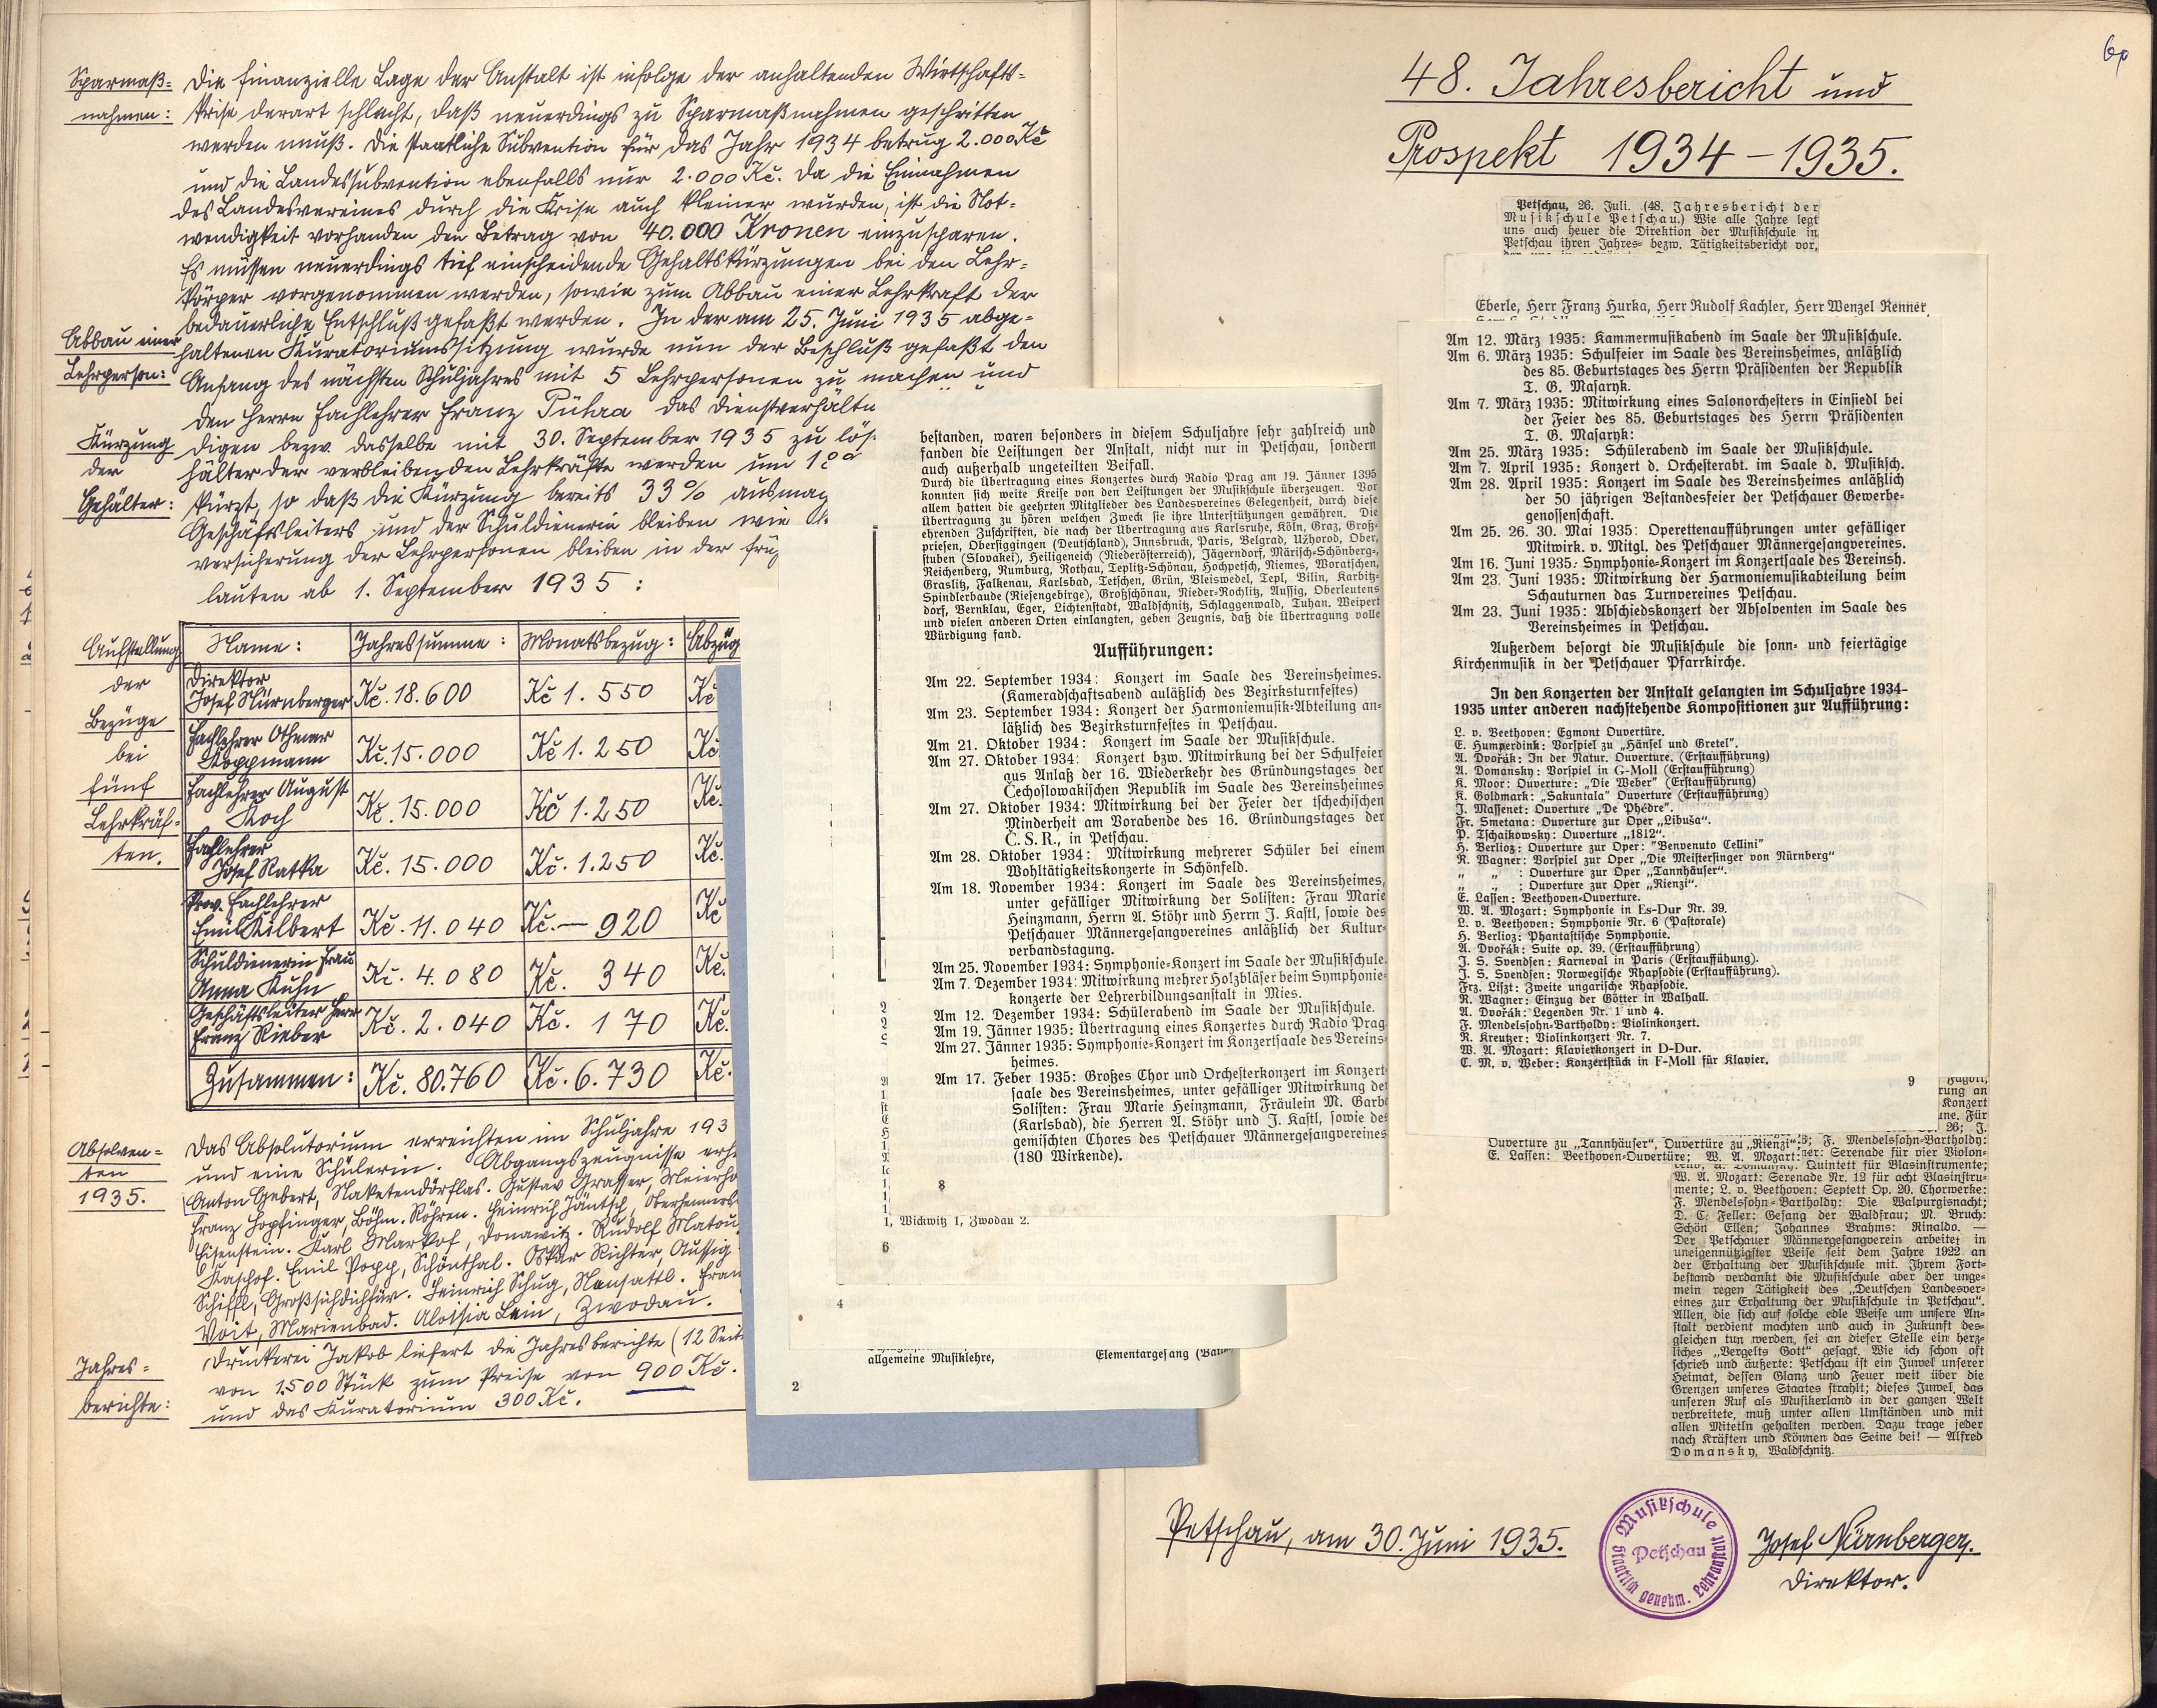 Sparmaß=
nahmen:
Die finanzielle Lage der Anstalt ist infolge der anhaltenden Wirtschafts=
krise derart schlecht, daß neuerdings zu Sparmaßnahmen geschritten
werden muß. Die staatliche Subvention für das Jahr 1934 betrug 2.000 Kč
und die Landessubvention ebenfalls nur 2.000 Kč. Da die Einnahmen
des Landesvereines durch die Krise auch kleiner wurden, ist die Not=
wendigkeit vorhanden den Betrag von 40.000 Kronen einzusparen.
Es müssen neuerdings tief einschneidende Gehaltskürzungen bei den Lehr=
körper vorgenommen werden, sowie zum Abbau einer Lehrkraft der
bedauerliche Entschluß gefaßt werden. In der am 25. Juni 1935 abge=
Abbau einer
Lehrperson:
haltenen Kuratoriumssitzung wurde nun der Beschluß gefaßt den
Anfang des nächsten Schuljahres mit 5 Lehrpersonen zu machen und
den Herrn Fachlehrer Franz das Dienstverhältn
Kürzung
der
Gehälter:
digen bezw. dasselbe mit 30. September 1935 zu lös
hälter der verbleibenden Lehrkräfte werden um
kürzt, so daß die Kürzung bereits 33% ausmac
Geschäftsleiters und der Schuldienerin bleiben wie
versicherung der Lehrpersonen bleiben in der frü
lauten ab 1. September 1935:
Aufstellung
der
Bezüge
bei
fünf
Lehrkräf=
ten.
Name: Jahressumme: Monatsbezug: Abzüg
Direktor
Josef Nürnberger Kč. 18.600 Kč 1.550 Kč
Fachlehrer Othmar
Koppmann Kč. 15.000 Kč 1.250 Kč
Fachlehrer August
Koch Kč. 15.000 Kč 1.250 Kč.
Fachlehrer
Josef Ratka Kč. 15.000 Kč. 1.250 Kč.
Prov. Fachlehrer
Emil Kilbert Kč. 11.040 Kč. — 920 Kč
Schuldienerin Frau
Anna Kuhn Kč. 4.080 Kč. 340 Kč.
Geschäftsleiter Herr
Franz Rieber Kč. 2.040 Kč. 170 Kč.
Zusammen: Kč. 80.760 Kč. 6.730 Kč.
Absolven=
ten
1935.
Das Absolutorium erreichten im Schuljahre 193
und eine Schülerin. Abgangszeugnisse erh
Anton Gebert, Naketendörflas. Gustav Grasser, Meierhö
Franz Hopfinger, Böhm. Röhren. Heinrich Jäntsch,
Eisenstein. Karl Markof, Donawitz. Rudolf Matou
Kaschof. Emil Popp, Schönthal. Oskar Richter, Aussig
Schiffl, Großsichdichfür. Heinrich Schug, Neusattl. Fran
Voit, Marienbad. Aloisia Lein, Zwodau.
Jahres=
berichte:
Druckerei Jakob liefert die Jahresberichte (12 Seit
von 1.500 Stück zum Preise von 900 Kč.
und das Kuratorium 300 Kč.
bestanden, waren besonders in diesem Schuljahre sehr zahlreich und
fanden die Leistungen der Anstalt, nicht nur in Petschau, sondern
auch außerhalb ungeteilten Beifall.
Durch die Übertragung eines Konzertes durch Radio Prag am 19. Jänner 1395
konnten sich weite Kreise von den Leistungen der Musikschule überzeugen. Vor
allem hatten die geehrten Mitglieder des Landesvereines Gelegenheit, durch diese
Übertragung zu hören welchen Zweck sie ihre Unterstützungen gewähren. Die
ehrenden Zuschriften, die nach der Übertragung aus Karlsruhe, Köln, Graz, Groß-
priesen, Obersiggingen (Deutschland), Innsbruck, Paris, Belgrad, Užhorod, Ober,
stuben (Slovakei), Heiligeneich (Niederösterreich), Jägerndorf, Märisch-Schönberg-,
Reichenberg, Rumburg, Rothau, Teplitz-Schönau, Hochpetsch, Niemes, Woratschen,
Graslitz, Falkenau, Karlsbad, Tetschen, Grün, Bleiswedel, Tepl, Bilin, Karbitz-
Spindlerbaude (Riesengebirge), Großschönau, Nieder-Rochlitz, Aussig, Oberleutens
dorf, Bernklau, Eger, Lichtenstadt, Waldschnitz, Schlaggenwald, Tuhan. Weipert
und vielen anderen Orten einlangten, geben Zeugnis, daß die Übertragung volle
Würdigung fand.
Aufführungen:
Am 22. September 1934: Konzert im Saale des Vereinsheimes.
(Kameradschaftsabend auläßlich des Bezirksturnfestes)
Am 23. September 1934: Konzert der Harmoniemusik-Abteilung an-
läßlich des Bezirksturnfestes in Petschau.
Am 21. Oktober 1934: Konzert im Saale der Musikschule.
Am 27. Oktober 1934: Konzert bzw. Mitwirkung bei der Schulfeier
aus Anlaß der 16. Wiederkehr des Gründungstages der
Čechoslowakischen Republik im Saale des Vereinsheimes
Am 27. Oktober 1934: Mitwirkung bei der Feier der tschechischen
Minderheit am Vorabende des 16. Gründungstages der
Č. S. R., in Petschau.
Am 28. Oktober 1934: Mitwirkung mehrerer Schüler bei einem
Wohltätigkeitskonzerte in Schönfeld.
Am 18. November 1934: Konzert im Saale des Vereinsheimes,
unter gefälliger Mitwirkung der Solisten: Frau Marie
Heinzmann, Herrn A. Stöhr und Herrn J. Kastl, sowie des
Petschauer Männergesangvereines anläßlich der Kultur-
verbandstagung.
Am 25. November 1934: Symphonie-Konzert im Saale der Musikschule.
Am 7. Dezember 1934: Mitwirkung mehrer Holzbläser beim Symphonie-
konzerte der Lehrerbildungsanstalt in Mies.
Am 12. Dezember 1934: Schülerabend im Saale der Musikschule.
Am 19. Jänner 1935: Übertragung eines Konzertes durch Radio Prag.
Am 27. Jänner 1935: Symphonie-Konzert im Konzertsaale des Vereins-
heimes.
Am 17. Feber 1935: Großes Chor und Orchesterkonzert im Konzert-
saale des Vereinsheimes, unter gefälliger Mitwirkung der
Solisten: Frau Marie Heinzmann, Fräulein M. Garb
(Karlsbad), die Herren A. Stöhr und J. Kastl, sowie des
gemischten Chores des Petschauer Männergesangvereines
(180 Wirkende).
8
1, Wickwitz 1, Zwodau 2.
6
4
allgemeine Musiklehre, Elementargesang
2
60
48. Jahresbericht und
Prospekt 1934–1935.
Petschau, 26. Juli. (48. Jahresbericht der
Musikschule Petschau.) Wie alle Jahre legt
uns auch heuer die Direktion der Musikschule in
Petschau ihren Jahres- bezw. Tätigkeitsbericht vor,
Eberle, Herr Franz Hurka, Herr Rudolf Kachler, Herr Wenzel Renner,
Am 12. März 1935: Kammermusikabend im Saale der Musikschule.
Am 6. März 1935: Schulfeier im Saale des Vereinsheimes, anläßlich
des 85. Geburtstages des Herrn Präsidenten der Republik
T. G. Masaryk.
Am 7. März 1935: Mitwirkung eines Salonorchesters in Einsiedl bei
der Feier des 85. Geburtstages des Herrn Präsidenten
T. G. Masaryk:
Am 25. März 1935: Schülerabend im Saale der Musikschule.
Am 7. April 1935: Konzert d. Orchesterabt. im Saale d. Musiksch.
Am 28. April 1935: Konzert im Saale des Vereinsheimes anläßlich
der 50 jährigen Bestandesfeier der Petschauer Gewerbe-
genossenschaft.
Am 25. 26. 30. Mai 1935: Operettenaufführungen unter gefälliger
Mitwirk. v. Mitgl. des Petschauer Männergesangvereines.
Am 16. Juni 1935: Symphonie-Konzert im Konzertsaale des Vereinsh.
Am 23 Juni 1935: Mitwirkung der Harmoniemusikabteilung beim
Schauturnen das Turnvereines Petschau.
Am 23. Juni 1935: Abschiedskonzert der Absolventen im Saale des
Vereinsheimes in Petschau.
Außerdem besorgt die Musikschule die sonn- und feiertägige
Kirchenmusik in der Petschauer Pfarrkirche.
In den Konzerten der Anstalt gelangten im Schuljahre 1934-
1935 unter anderen nachstehende Kompositionen zur Aufführung:
L. v. Beethoven: Egmont Ouvertüre.
E. Humperdink: Vorspiel zu „Hänsel und Gretel".
A. Dvořák: In der Natur. Ouverture. (Erstaufführung)
A. Domansky: Vorspiel in G-Moll (Erstaufführung)
K. Moor: Ouverture: „Die Weber" (Erstaufführung)
K. Goldmark: „Sakuntala" Ouverture (Erstaufführung)
J. Massenet: Ouverture „De Phédre".
Fr. Smetana: Ouverture zur Oper „Libuša".
P. Tschaikowsky: Ouverture „1812".
H. Berlioz: Ouverture zur Oper: "Benvenuto Cellini"
R. Wagner: Vorspiel zur Oper „Die Meistersinger von Nürnberg"
„ „ : Ouverture zur Oper „Tannhäuser".
„ „ : Ouverture zur Oper „Rienzi".
E. Lassen: Beethoven-Ouverture.
W. A. Mozart: Symphonie in Es-Dur Nr. 39.
L. v. Beethoven: Symphonie Nr. 6 (Pastorale)
H. Berlioz: Phantastische Symphonie.
A. Dvořák: Suite op. 39. (Erstaufführung)
J. S. Svendsen: Karneval in Paris (Erstauffühung).
J. S. Svendsen: Norwegische Rhapsodie (Erstaufführung).
Frz. Liszt: Zweite ungarische Rhapsodie.
R. Wagner: Einzug der Götter in Walhall.
A. Dvořák: Legenden Nr. 1 und 4.
F. Mendelssohn-Bartholdy: Violinkonzert.
R. Kreutzer: Violinkonzert Nr. 7.
W. A. Mozart: Klavierkonzert in D-Dur.
C. M. v. Weber: Konzertstück in F-Moll für Klavier.
9
Fagott,
rung an
Konzert
Für
26; J.
Ouverture zu „Tannhäuser", Ouvertüre zu „Rienzi"; F. Mendelsohn-Bartholdy:
E. Lassen: Beethoven-Ouvertüre; W. A. Mozart: Serenade für vier Violon-
Quintett für Blasinstrumente;
W. A. Mozart: Serenade Nr. 12 für acht Blasinstru-
mente; L. v. Beethoven: Septett Op. 20. Chorwerke:
F. Mendelssohn-Bartholdy: Die Walpurgisnacht;
D. C. Feller: Gesang der Waldfrau; M. Bruch:
Schön Ellen; Johannes Brahms: Rinaldo. —
Der Petschauer Männergesangverein arbeitet in
uneigennützigster Weise seit dem Jahre 1922 an
der Erhaltung der Musikschule mit. Ihrem Fort-
bestand verdankt die Musikschule aber der unge-
mein regen Tätigkeit des „Deutschen Landesver-
eines zur Erhaltung der Musikschule in Petschau".
Allen, die sich auf solche edle Weise um unsere An-
stalt verdient machten und auch in Zukunft des-
gleichen tun werden, sei an dieser Stelle ein herz-
liches „Vergelts Gott" gesagt. Wie ich schon oft
schrieb und äußerte: Petschau ist ein Juwel unserer
Heimat, dessen Glanz und Feuer weit über die
Grenzen unseres Staates strahlt; dieses Juwel, das
unseren Ruf als Musikerland in der ganzen Welt
verbreitete, muß unter allen Umständen und mit
allen Mitetln gehalten werden. Dazu trage jeder
nach Kräften und Können das Seine bei! — Alfred
Domansky, Waldschnitz.
Petschau, am 30. Juni 1935.
Musikschule
Petschau
staatlich genehm. Lehranstalt
Josef Nürnberger.
Direktor.